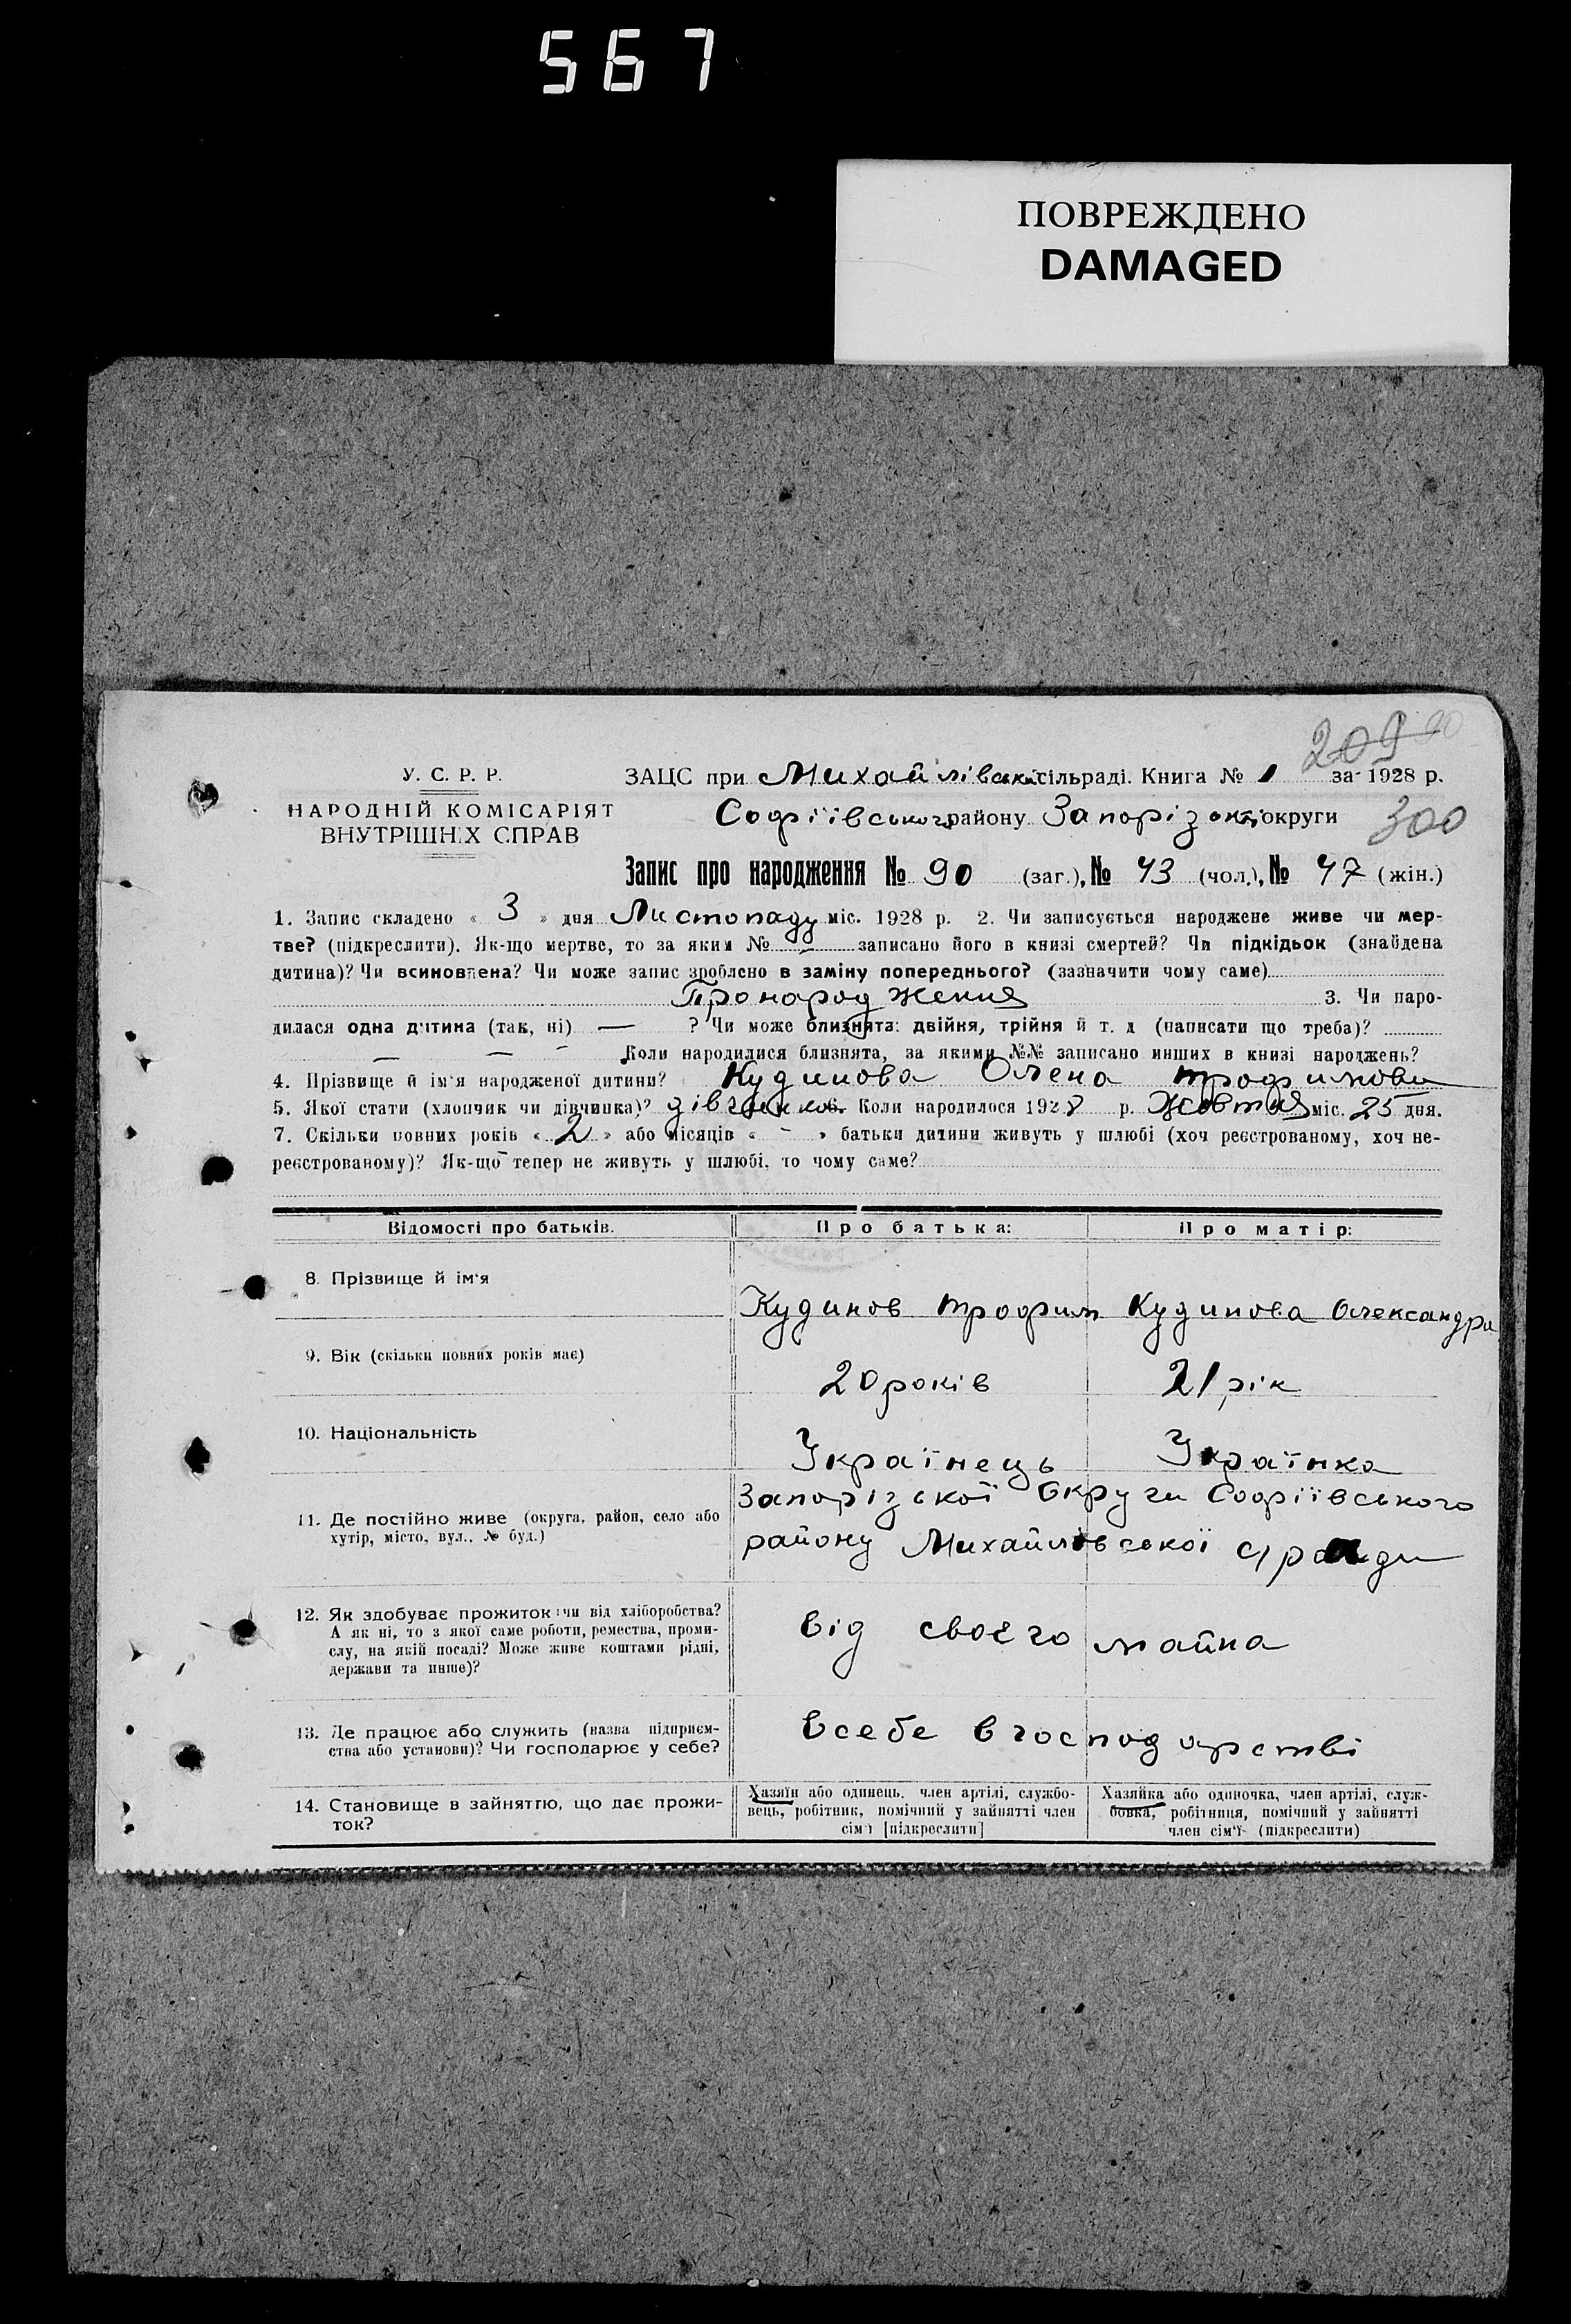 567
ПОВРЕЖДЕНО
DAMAGED
209
300
У. С. Р. Р.
НАРОДНІЙ КОМІСАРІЯТ
ВНУТРІШНІХ СПРАВ
ЗАЦС при Михайлівській сільраді. Книга № 1 за 1928 р.
Софіївського району Запорізької округи
Запис про народження № 90 (заг.), № 43 (чол.), № 47 (жін.)
1. Запис складено « 3 » дня Листопаду міс. 1928 р. 2. Чи записується народжене живе чи мер-
тве? (підкреслити). Як-що мертве, то за яким № записано його в книзі смертей? Чи підкідьок (знайдена
дитина)? Чи всиновлена? Чи може запис зроблено в заміну попереднього? (зазначити чому саме)
Про народження 3. Чи наро-
дилася одна дитина (так, ні) — ? Чи може близнята: двійня, трійня й т. д (написати що треба)?
— — — Коли народилися близнята, за якими №№ записано инших в книзі народжень?
4. Прізвище й ім'я народженої дитини? Кудинова Олена Трофимови
5. Якої стати (хлопчик чи дівчинка)? дівчинка 6. Коли народилося 1928 р. Жовтня міс. 25 дня.
7. Скільки повних років « 2 » або місяців « - » батьки дитини живуть у шлюбі (хоч реєстрованому, хоч не-
реєстрованому)? Як-що тепер не живуть у шлюбі, то чому саме?
Відомості про батьків. Про батька: Про матір:
8. Прізвище й ім'я Кудинов Трофим Кудинова Олександра
9. Вік (скільки повних років має) 20 років 21 рік
10. Національність Українець Українка
11. Де постійно живе (округа, район, село або
хутір, місто, вул., № буд.)
Запорізької Округи Софіївського
району Михайлівської с/ради
12. Як здобуває прожиток: чи від хліборобства?
А як ні, то з якої саме роботи, ремества, проми-
слу, на якій посаді? Може живе коштами рідні,
держави та инше)?
від своєго майна
13. Де працює або служить (назва підприєм-
ства або установи)? Чи господарює у себе?
в себе в господарстві
14. Становище в зайняттю, що дає прожи-
ток?
Хазяїн або одинець, член артілі, службо-
вець, робітник, помічний у зайнятті член
сім'ї [підкреслити]
Хазяйка або одиночка, член артілі, служ-
бовка, робітниця, помічний у зайнятті
член сім'ї (підкреслити)